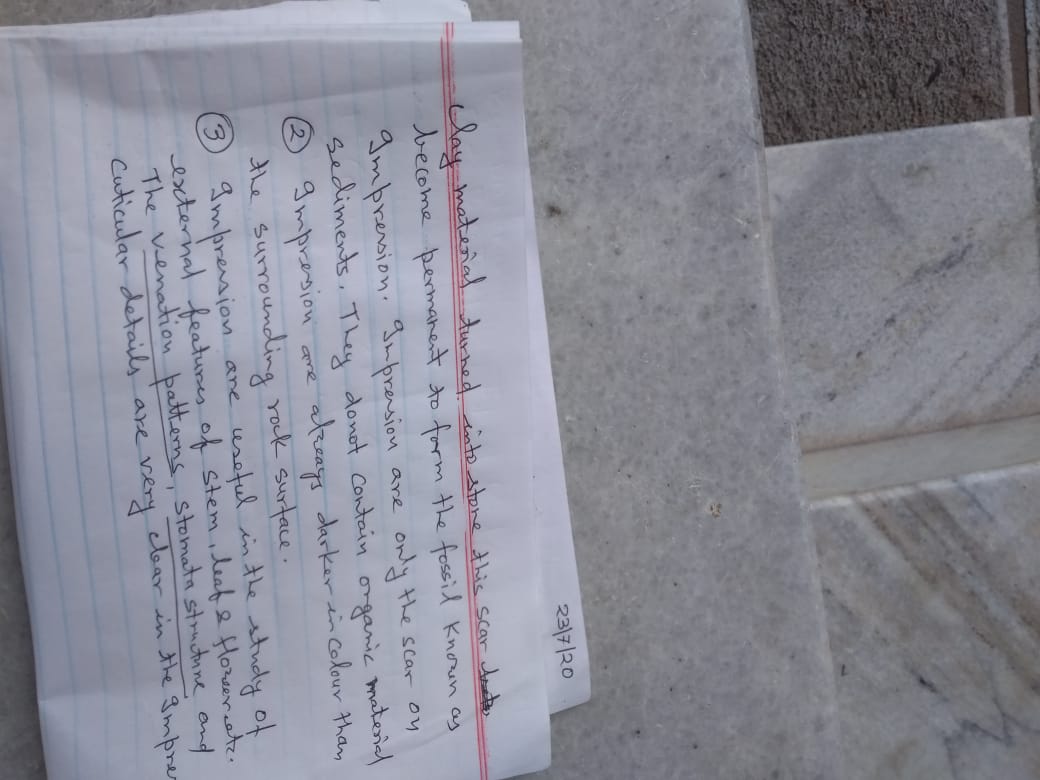 23/7/20
Clay material turned into stone this scar
become permanent to form the fossil known as
Impression. Impression are only the scar on
sediments. They donot contain organic material
② Impression are always darker in colour than
the surrounding rock surface.
③ Impression are useful in the study of
external features of stem, leaf & flower etc.
The venation patterns, stomata structure and
cuticular details are very clear in the Impre